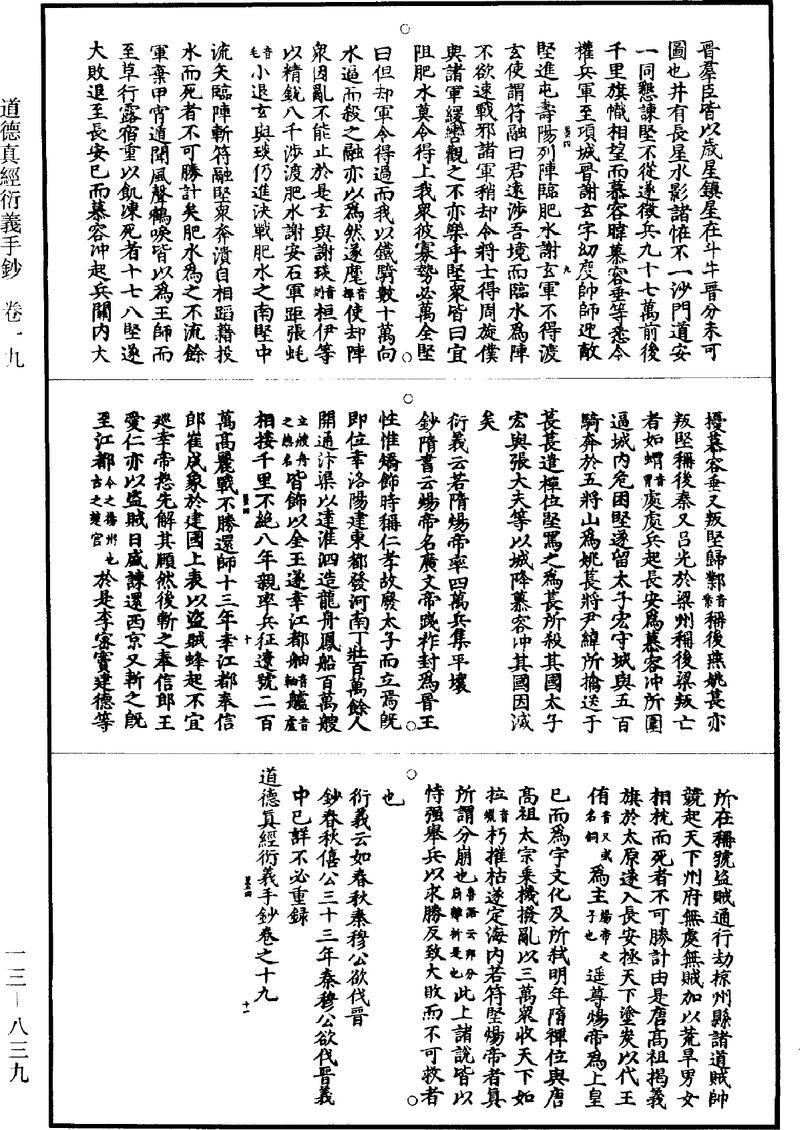 道德真經衍義手鈔　卷一九
一三—八三九
晉羣臣皆以歲星鎮星在斗牛晉分未可
圖也并有長星水影諸恠不一沙門道安
一同懇諫堅不從遂徵兵九十七萬前後
千里旗幟相望而慕容暐慕容垂等悉令
權兵軍至項城晉謝玄字幼度帥師迎敵
堅進屯壽陽列陣臨肥水謝玄軍不得渡
玄使謂符融曰君遠涉吾境而臨水為陣
不欲速戰邪諸軍稍却令將士得周旋僕
與諸軍緩轡觀之不亦樂乎堅衆皆曰宜
阻肥水莫令得上我衆彼寡勢必萬全堅
曰但却軍令得過而我以鐵騎數十萬向
水逼而殺之融亦以為然遂麾音揮使却陣
衆因亂不能止於是玄與謝琰音剡桓伊等
以精銳八千涉渡肥水謝安石軍距張蚝
音毛小退玄與琰仍進決戰肥水之南堅中
流矢臨陣斬符融堅衆奔潰自相蹈藉投
水而死者不可勝計矣肥水為之不流餘
軍棄甲宵遁聞風聲鶴唳皆以為王師而
至草行露宿重以飢凍死者十七八堅遂
大敗退至長安已而慕容沖起兵關內大
擾慕容垂又叛堅歸鄴音業稱後燕姚萇亦
叛堅稱後秦又呂光於梁州稱後梁叛亡
者如蝟音胃處處兵起長安為慕容沖所圍
逼城內危困堅遂留太子宏守城與五百
騎奔於五將山為姚萇將尹緯所擒送于
萇萇遣禪位堅罵之為萇所殺其國太子
宏與張大夫等以城降慕容沖其國因滅
矣
衍義云若隋煬帝率四萬兵集平壤
鈔隋書云煬帝名廣文帝踐祚封為晉王
性惟矯飾時稱仁孝故廢太子而立焉旣
即位幸洛陽建東都發河南丁壯百萬餘人
開通汴渠以達淮泗造龍舟鳳船百萬艘
皆飾以金玉遂幸江都舳音軸艫音盧
相接千里不絕八年親率兵征遼號二百
萬高麗戰不勝還師十三年幸江都奉信
郎崔成象於建國上表以盜賊蜂起不宜
廵幸帝怒先解其頤然後斬之奉信郎王
愛仁亦以盜賊日盛諫還西京又斬之旣
至江都今之揚州也古之楚宫於是李密竇建德等
所在稱號盜賊通行劫掠州縣諸道賊帥
競起天下州府無處無賊加以荒旱男女
相枕而死者不可勝計由是唐高祖揭義
旗於太原遂入長安拯天下塗炭以代王
侑音又或名侗為主煬帝之子也遥尊煬帝為上皇
已而為宇文化及所弒明年隋禪位與唐
高祖太宗乘機撥亂以三萬衆收天下如
拉音蠟朽摧枯遂定海內若符堅煬帝者真
所謂分崩也魯語云邦分崩離析是也此上諸說皆以
恃强舉兵以求勝反致大敗而不可救者
也
衍義云如春秋秦穆公欲伐晉
鈔春秋僖公三十三年秦穆公欲伐晉義
中已詳不必重録
道德真經衍義手鈔卷之十九